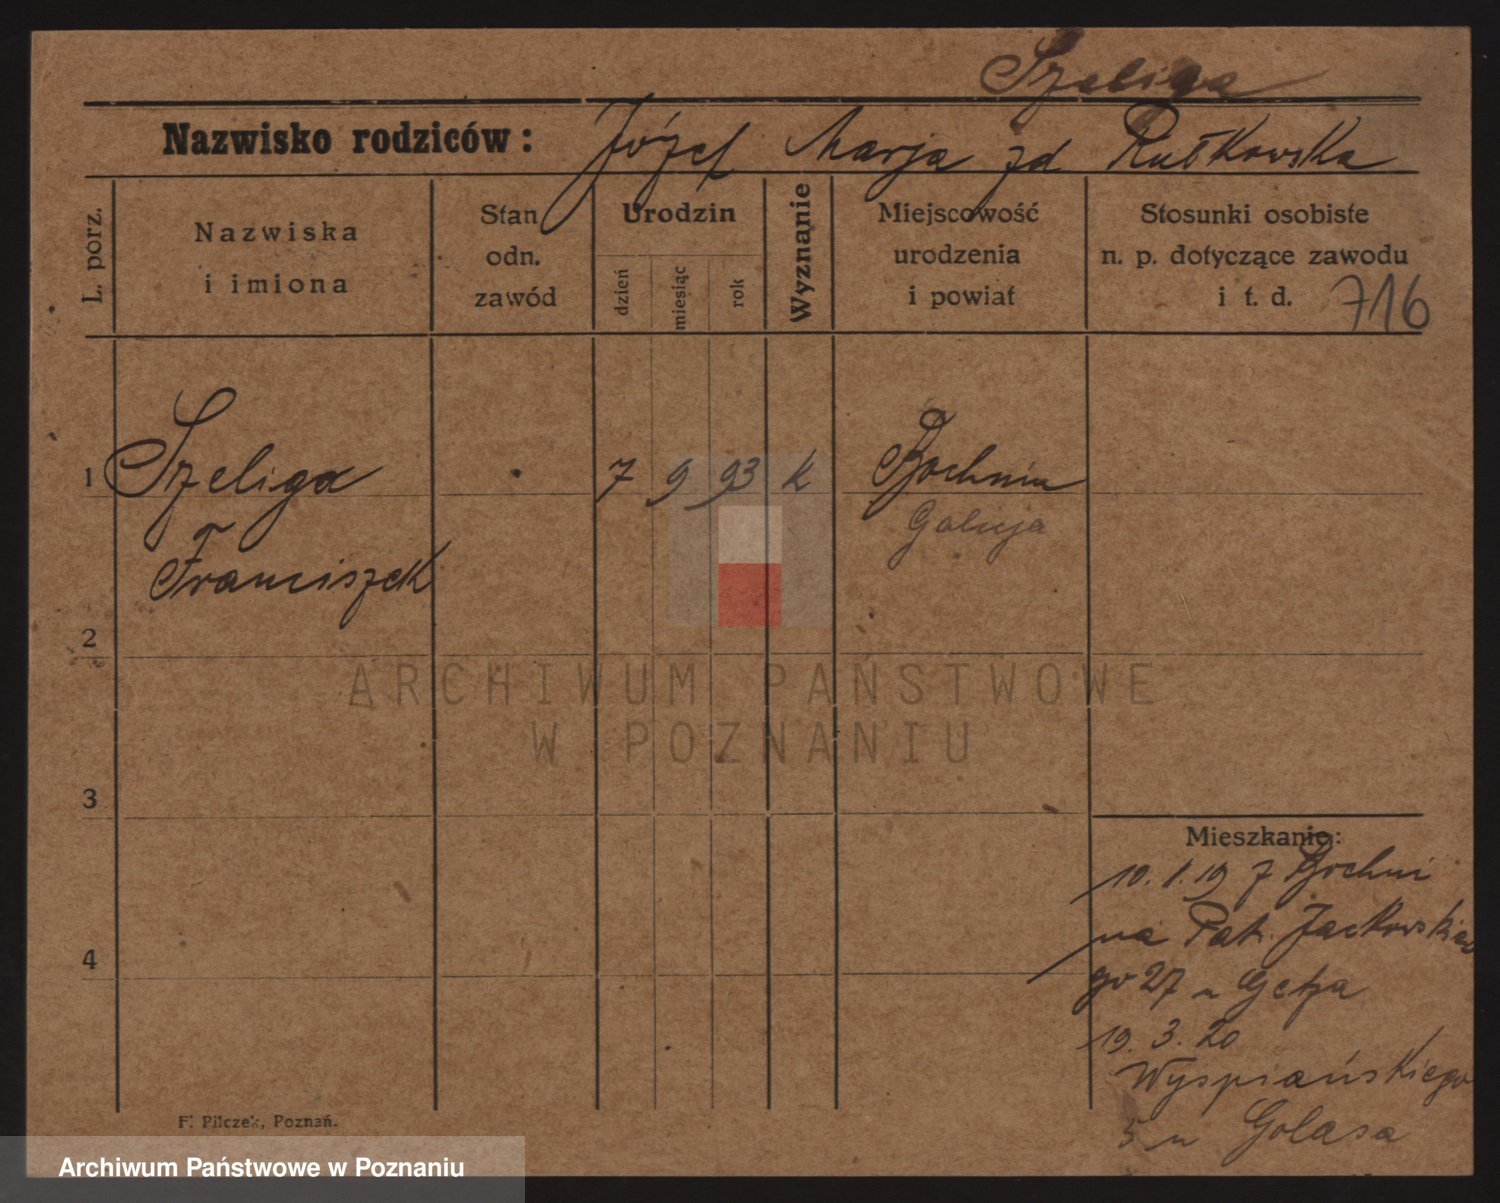 Szeliga
Nazwisko rodziców: Józef Marja zd Rutkowska
L. porz.
Nazwiska
i imiona
Stan
odn.
zawód
Urodzin
dzień
miesiąc
rok
Wyznanie
Miejscowość
urodzenia
i powiat
Stosunki osobiste
n. p. dotyczące zawodu
i t. d.
716
1 Szeliga 7 9 93 k Bochnia
Galicja
Franciszek
2
ARCHIWUM PAŃSTWOWE
W POZNANIU
3
Mieszkanie:
10.1.19 z Bochni
na Pat. Jackowskie
4
go 27 u Getza
19.3.20
Wyspiańskiego
5 u Golasa
F. Pilczek, Poznań.
Archiwum Państwowe w Poznaniu